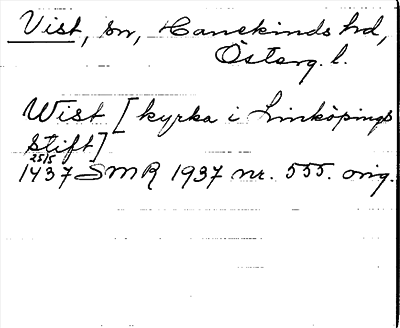 Vist, sn, Hanekinds hd,
Österg. l.
Wist [kyrka i Linköpings
stift]
25/5
1437 SMR 1937 nr. 555. orig.